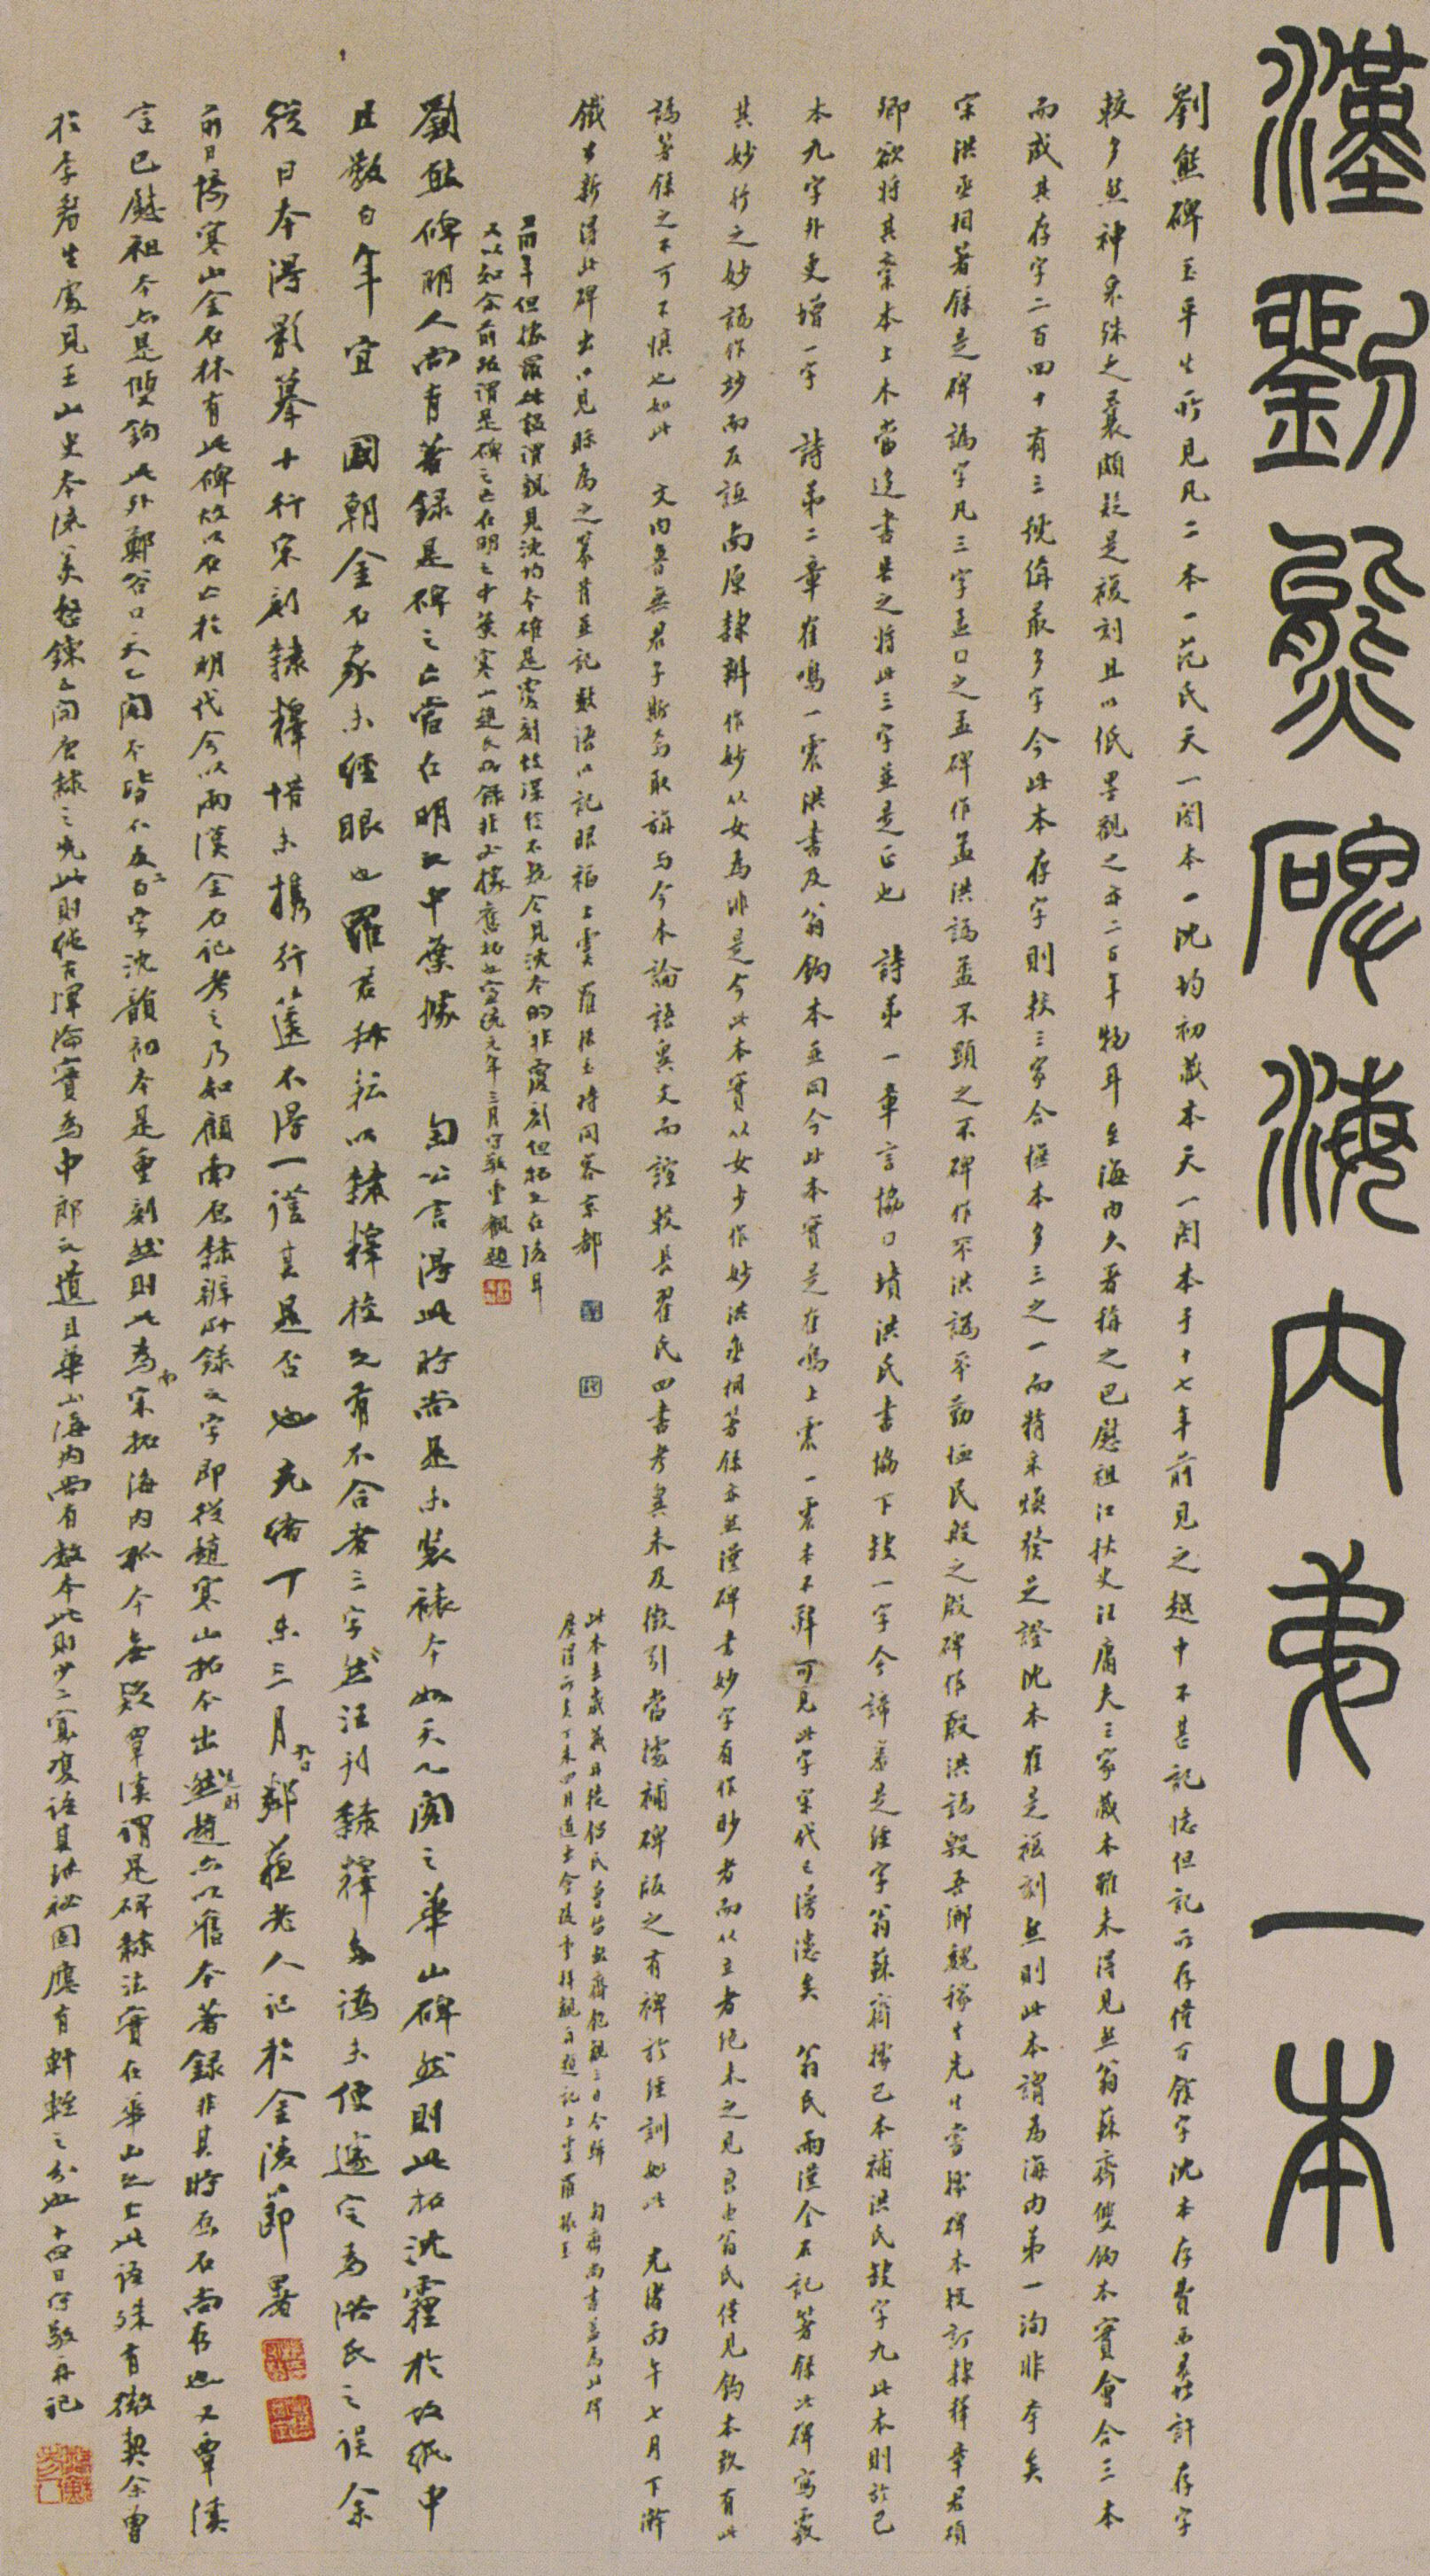 漢劉熊碑海內弟一本
劉熊碑玉平生所見凡二本一范氏天一閣本一沈均初藏本天一閣本于十七年前見之越中不甚記憶但記所存僅百餘字沈本存費西蠡許存字
較多然神采殊乏曩頗疑是複刻且以紙墨觀之亦二百年物耳至海內久著稱之巴慰祖江秋史汪庸夫三家藏本雖未得見然翁蘇齋雙鉤本實會合三本
而成其存字二百四十有三號偁最多字今此本存字則較三家合樵本多三之一而精采煥發足證沈本隺是複刻然則此本謂為海內第一洵非夸矣
宋洪丞相著錄是碑譌字凡三字孟口之孟碑作孟洪譌孟不顯之不碑作不洪譌平勤恤民殷之殷碑作殷洪譌毀吾鄉魏稼生先生嘗據碑本校訂隸釋章君碩
卿欲將其橐本上木當迻書畀之將此三字並是正也 詩弟一章言協口墳洪氏書協下缺一字今諦審是經字翁蘇齋據巴本補洪氏缺字九此本則於巴
本九字外更增一字 詩弟二章隺鳴一震洪書及翁鉤本並同今此本實是隺鳴上震一震本不辭可見此字宋代已漫漶矣 翁氏兩漢金石記箸錄此碑寫竅
其妙行之妙譌作玅而反詆南原隸辨作妙从女為非是今此本實从女少作妙洪丞相箸錄亦然漢碑書妙字有作眇者而从立者絕未之見良由翁氏僅見鉤本致有此
譌箸錄之不可不慎也如此 文內魯無君子斯焉取旃与今本論語異文而證較長翟氏四書考異未及徵引當據補碑版之有裨於經訓如此 光緒丙午七月下澣
鐵老新得此碑出以見眎為之審省並記數語以記眼福上虞羅振玉時同客京都
此本去歲薿再從侶氏專皆匋齋飽觀三日今歸 匋齋尚書蓋為此碑
慶得所矣丁未四月道出金陵重拜觀并題記上虞羅振玉
前年但據羅叔蘊謂親見沈均本確是覆刻故深信不疑今見沈本的非覆刻但拓之在後耳
又以知余前跋謂是碑之亡在明之中葉寒山趙氏所錄非必據舊拓也宣統元年三月守敬重觀題
劉熊碑明人尚有著錄是碑之亡當在明之中葉據 匋公言得此時尚是未裝裱本如天乙閣之華山碑然則此拓沈霾於故紙中
且數百年宜 國朝金石家未經眼也羅君叔耘以隸釋校之有不合者三字然汪刊隸釋多譌未便遽定為洪氏之誤余
從日本得影摹十行宋刻隸釋惜未攜行篋不得一證其是否也光緒丁未三月九日鄰蘇老人記於金陵節署
前日據寒山金石林有此碑故以石亡於明代今以兩漢金石記考之乃知顧南原隸辨所錄之字即從趙寒山拓本出然趙亦以舊本著錄非其時原石尚存也又覃溪
言巴慰祖本亦是雙鉤此外鄭谷口天乙閣本皆不及百字沈韻初本是重刻然則此為宋拓海內孤本無疑覃溪謂是碑隸法實在華山之上此語殊有微契余曾
於李眉生處見王山史本流美整鍊已向唐隸之先此則純古渾淪實為中郎之遺且華山海內尚有數本此則少二寡復証其珍祕固應有軒輊之分也十四日守敬再記